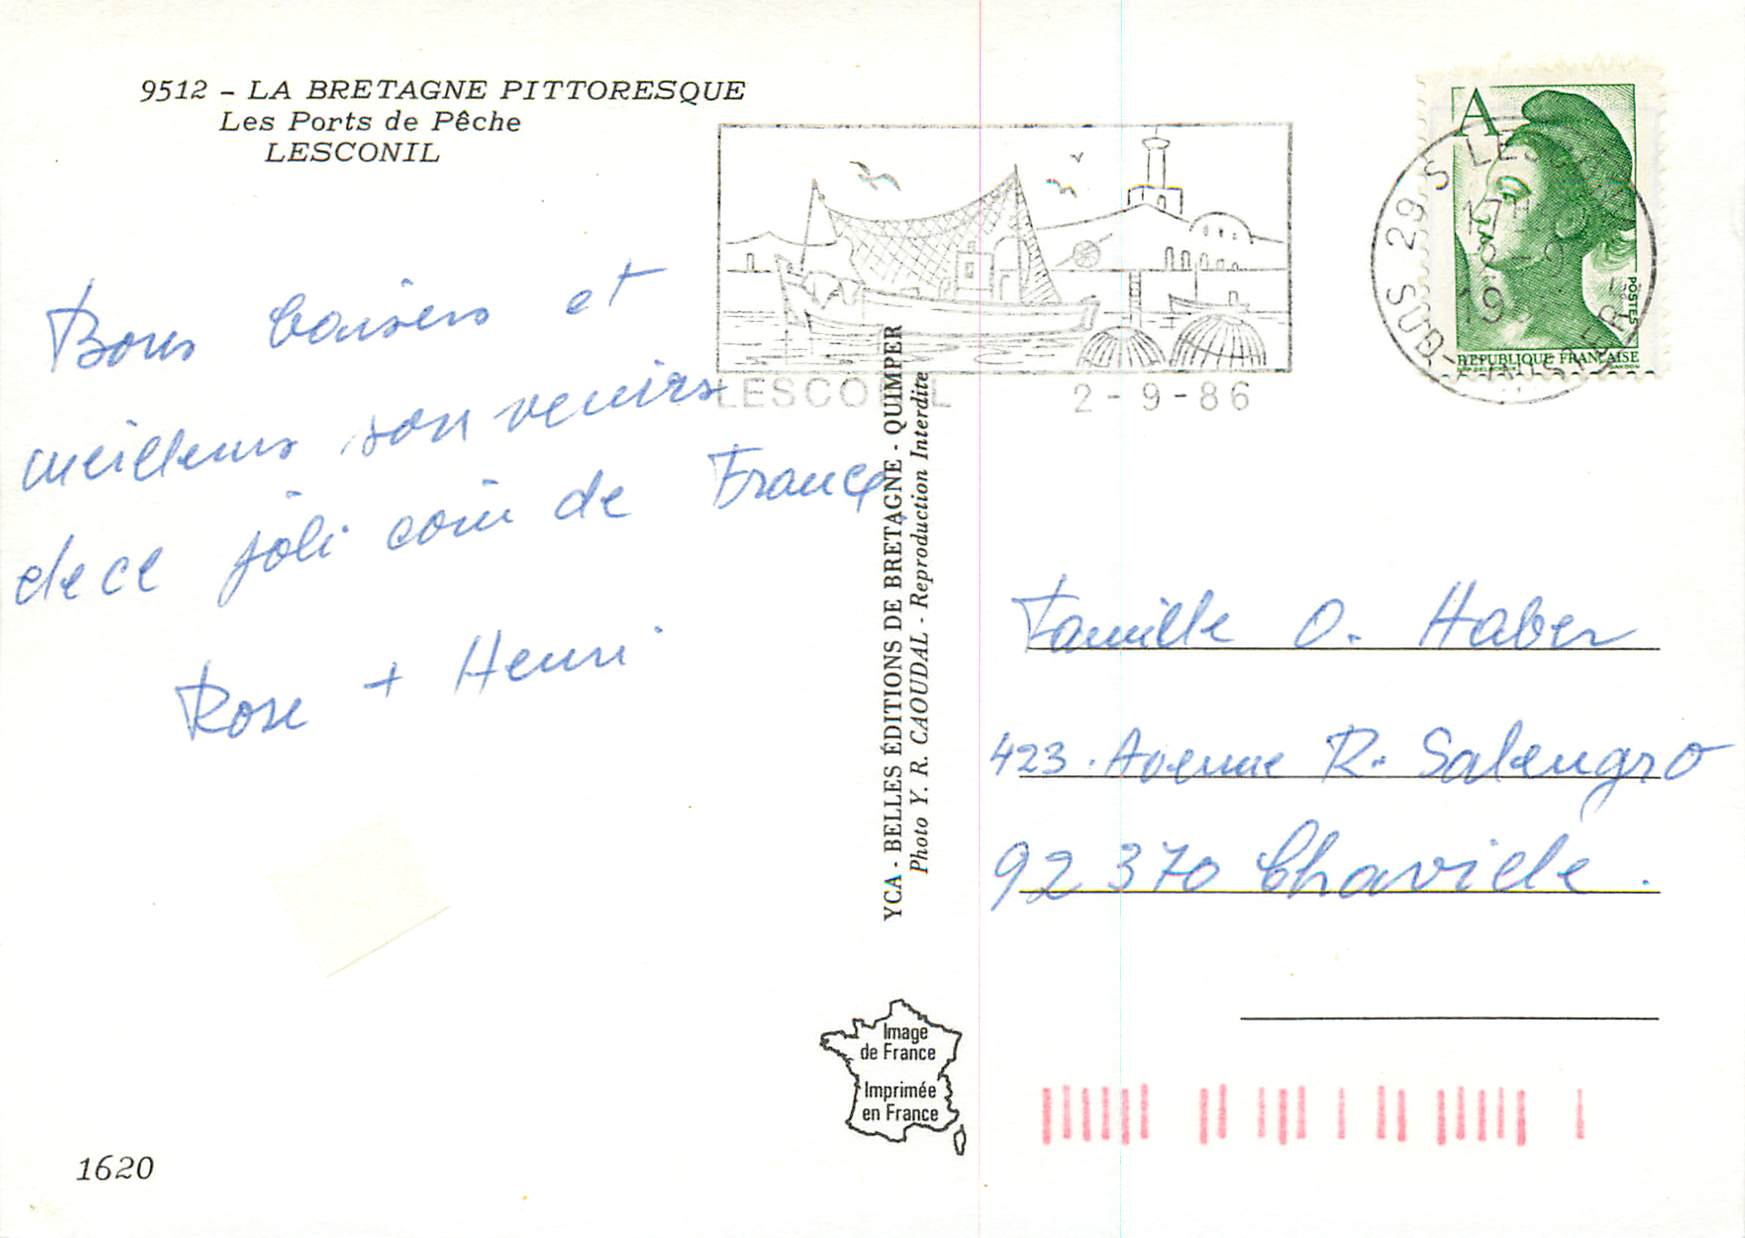 9512 - LA BRETAGNE PITTORESQUE
Les Ports de Pêche
LESCONIL
Bons baisers et
meilleurs souvenirs
de ce joli coin de France
Rose + Henri
1620
LESCONIL 2-9-86
A
POSTES
REPUBLIQUE FRANCAISE
29 S
SUD
YCA - BELLES ÉDITIONS DE BRETAGNE - QUIMPER
Photo Y. R. CAOUDAL - Reproduction Interdite
Famille O. Haber
423. Avenue R. Salengro
92370 Chaville.
Image
de France
Imprimée
en France